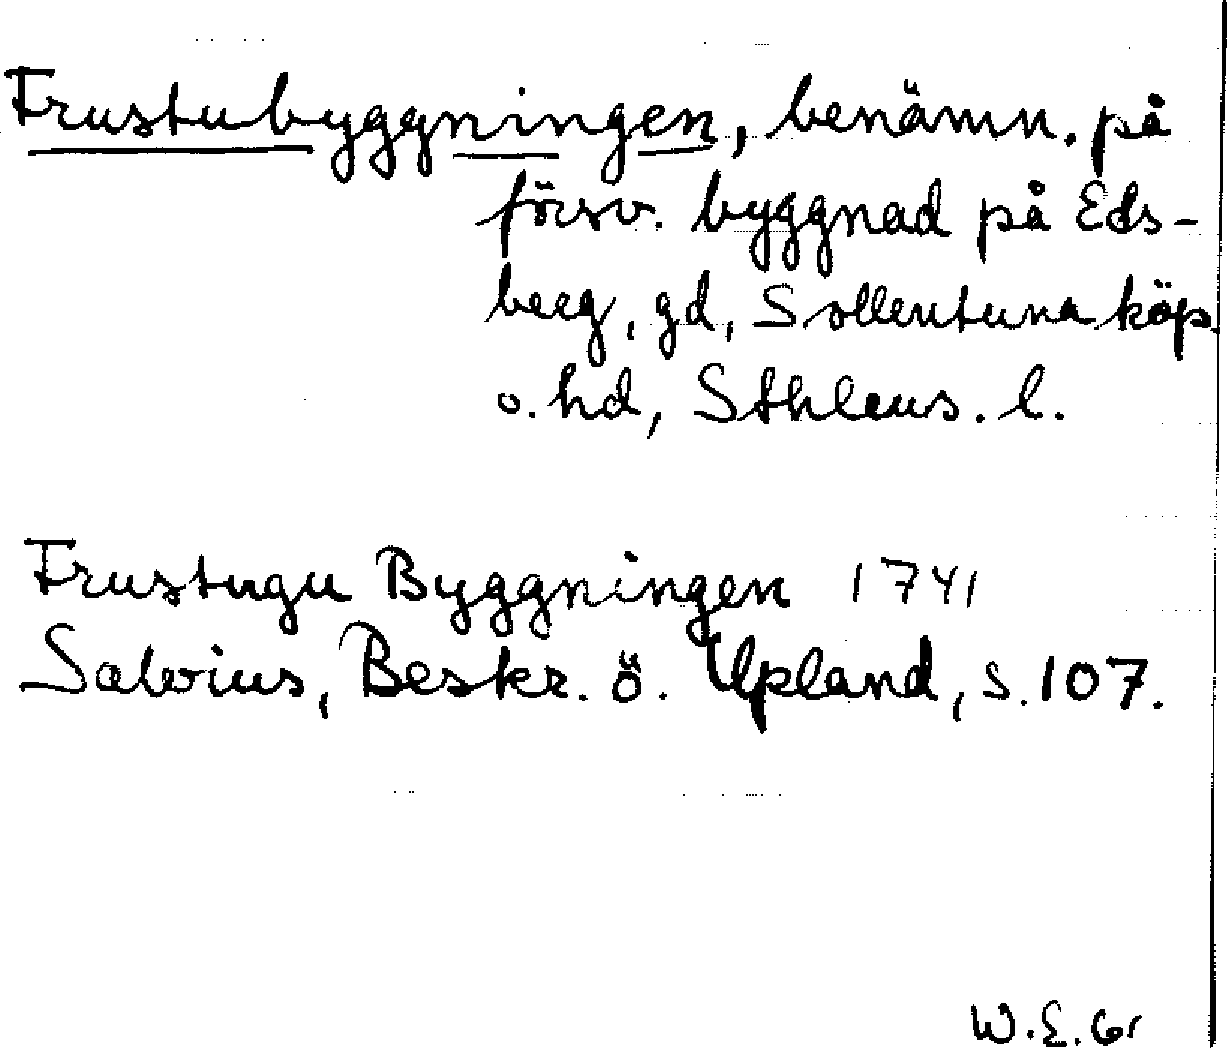 Frustubyggningen, benämn. på
försv. byggnad på Eds-
berg, gd, Sollentuna köp.
o. hd, Sthlms. l.
Frustugu Byggningen 1741
Salvius, Beskr. ö. Upland, s. 107.
W.E.Gr